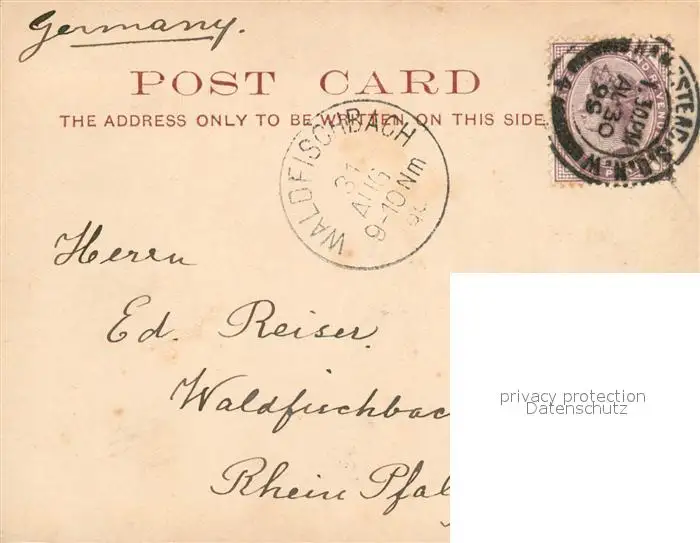 Germany.
POST CARD
THE ADDRESS ONLY TO BE WRITTEN ON THIS SIDE.
WALDFISCHBACH
31
AUG
9-10 Nm
1.30 PM
AU 30
99
N.W
Herrn
Ed. Reiser.
Waldfischbac
Rhein Pfal
privacy protection
Datenschutz